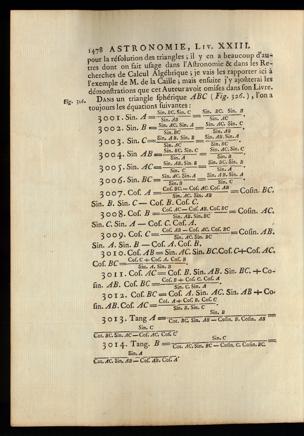 1478 ASTRONOMIE, LIV. XXIII.
pour la résolution des triangles ; il y en a beaucoup d'au-
tres dont on fait usage dans l'Astronomie & dans les Re-
cherches de Calcul Algébrique ; je vais les rapporter ici à
l'exemple de M. de la Caille ; mais ensuite j'y ajoûterai les
démonstrations que cet Auteur avoit omises dans son Livre.
Dans un triangle sphérique ABC (Fig. 326.), l'on a
Fig. 326.
toujours les équations suivantes :
3001. Sin. A = Sin. BC. Sin. C / Sin. AB = Sin. BC. Sin. B / Sin. AC.
3002. Sin. B = Sin. AC. Sin. A / Sin. BC = Sin. AC. Sin. C / Sin. AB.
3003. Sin. C = Sin. AB. Sin. B / Sin. AC = Sin. AB. Sin. A / Sin. BC.
3004. Sin AB = Sin. BC. Sin. C / Sin. A = Sin. AC. Sin. C / Sin. B.
3005. Sin. AC = Sin. AB. Sin. B / Sin. C = Sin. BC. Sin. B / Sin. A.
3006. Sin. BC = Sin. AC. Sin. A / Sin. B = Sin. AB. Sin. A / Sin. C.
3007. Cos. A = Cos. BC — Cos. AC. Cos. AB / Sin. AC. Sin. AB = Cosin. BC.
Sin. B. Sin. C — Cos. B. Cos. C.
3008. Cos. B = Cos. AC — Cos. AB. Cos. BC / Sin. AB. Sin. BC = Cosin. AC.
Sin. C. Sin. A — Cos. C. Cos. A.
3009. Cos. C = Cos. AB — Cos. AC. Cos. BC / Sin. AC. Sin. BC = Cosin. AB.
Sin. A. Sin. B — Cos. A. Cos. B.
3010. Cos. AB = Sin. AC. Sin. BC. Cos. C + Cos. AC.
Cos. BC = Cos. C + Cos. A. Cos. B / Sin. A. Sin. B.
3011. Cos. AC = Cos. B. Sin. AB. Sin. BC. + Co-
sin. AB. Cos. BC = Cos. B + Cos. C. Cos. A / Sin. C. Sin. A.
3012. Cos. BC = Cos. A. Sin. AC. Sin. AB + Co-
sin. AB. Cos. AC = Cos. A + Cos. B. Cos. C / Sin. B. Sin. C.
3013. Tang A = Sin. B / Cot. BC. Sin. AB — Cosin. B. Cosin. AB =
Sin. C / Cot. BC. Sin. AC — Cos. AC. Cos. C
3014. Tang. B = Sin. C / Cot. AC. Sin. BC — Cosin. C. Cosin. BC. =
Sin. A / Cot. AC. Sin. AB — Cos. AB. Cos. A.